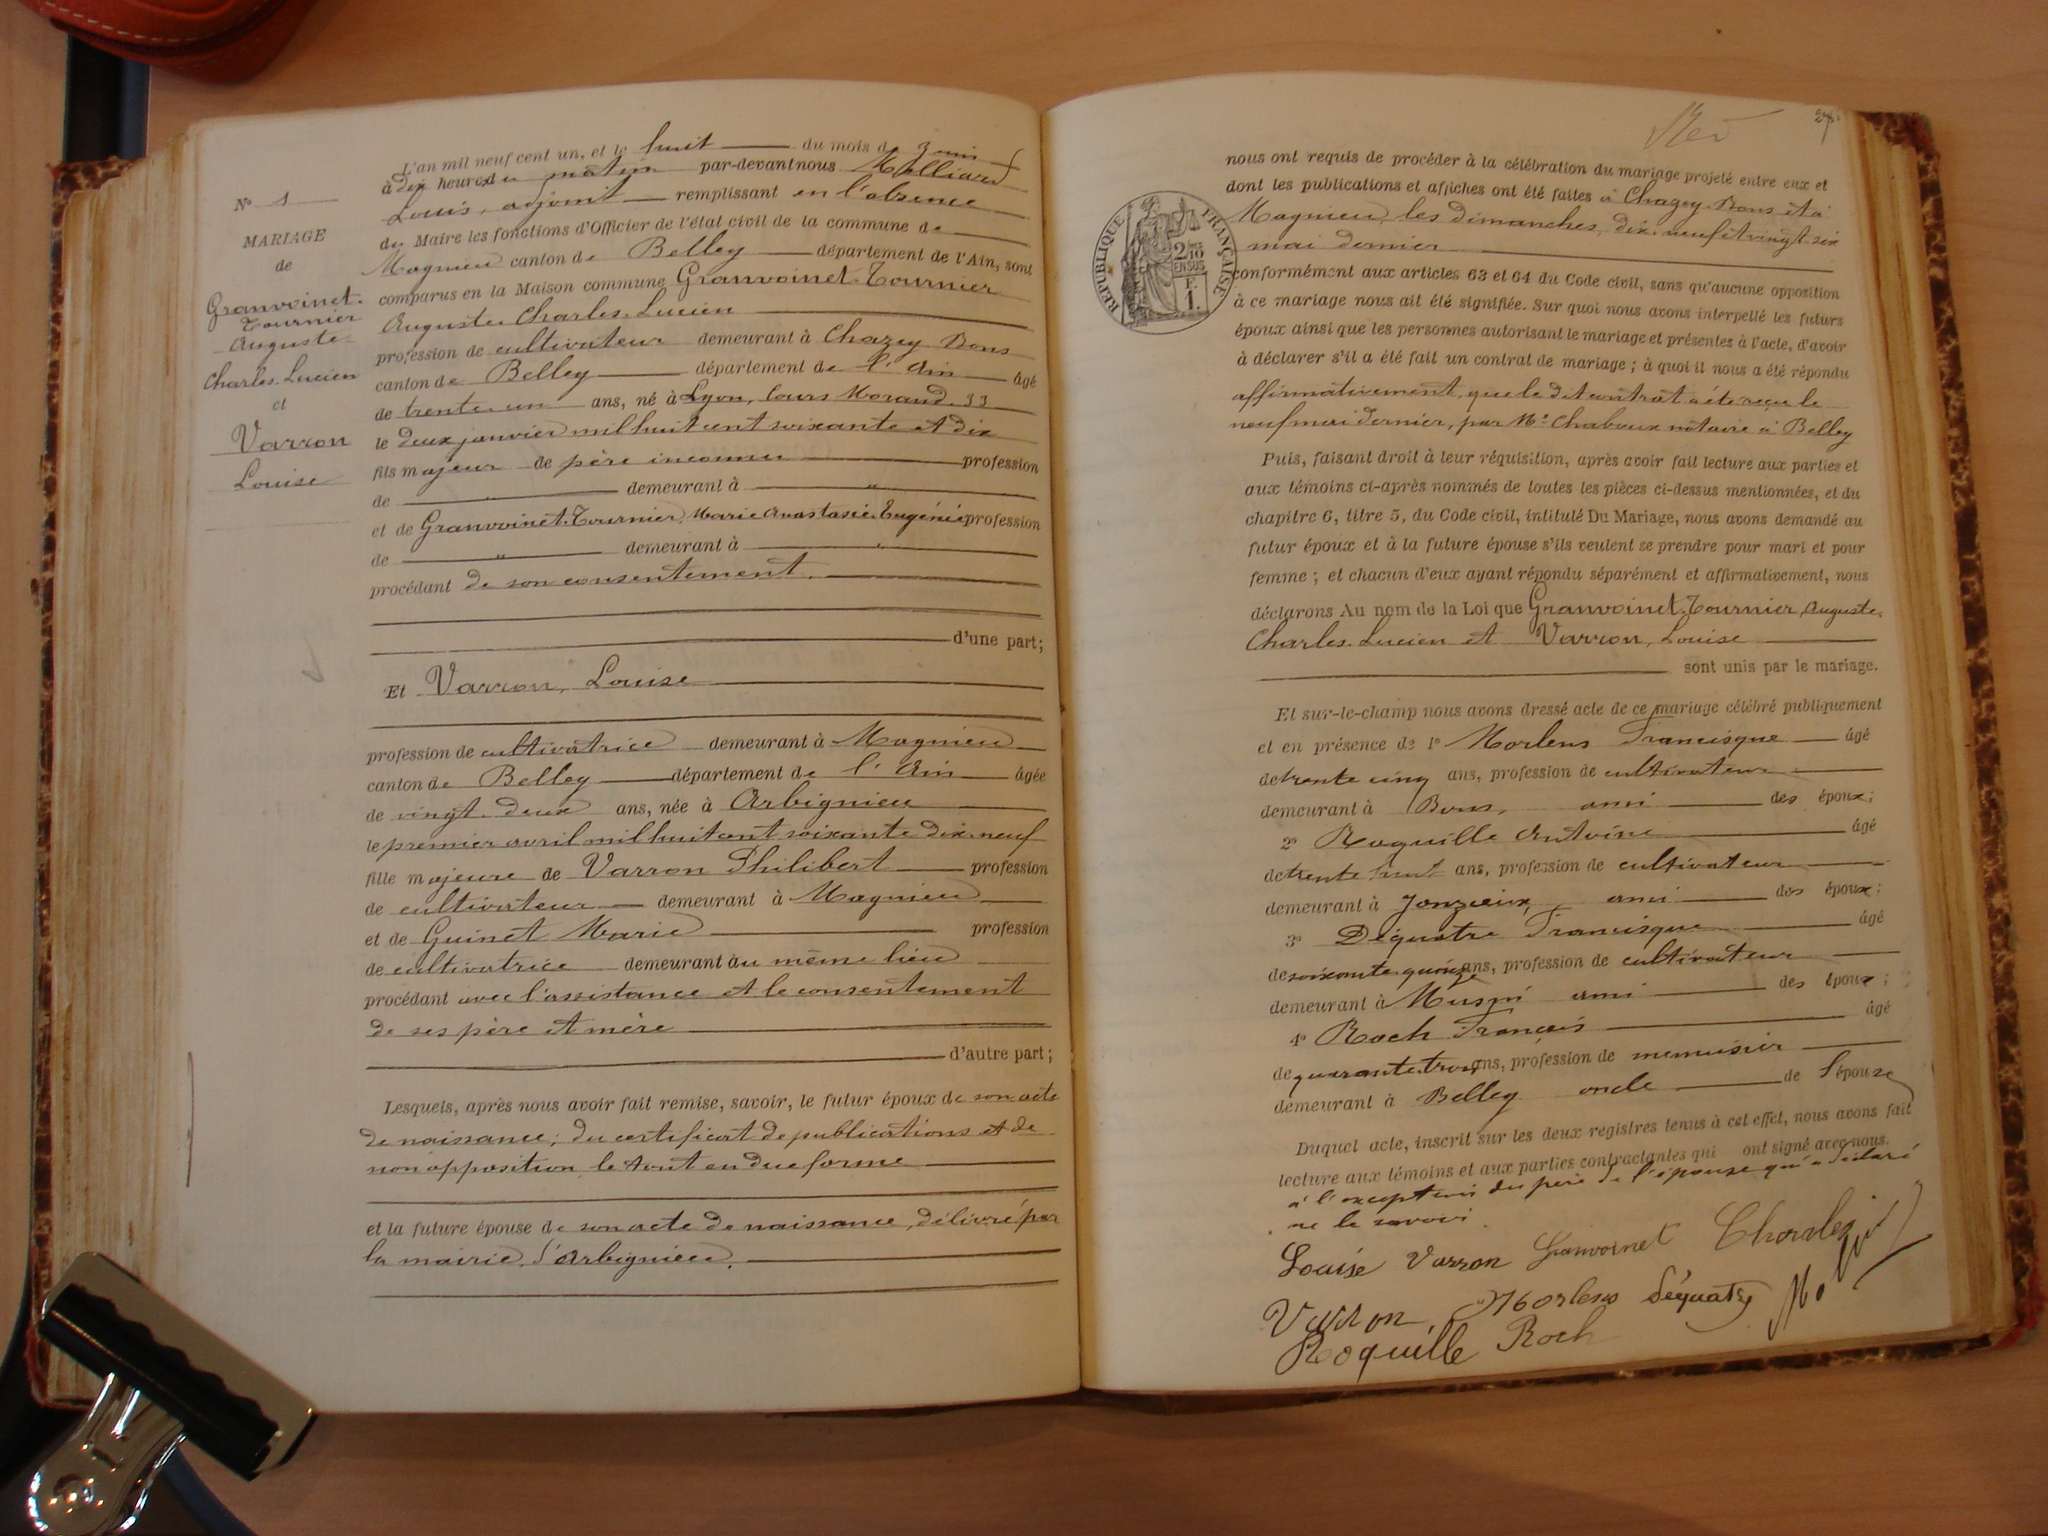 N° 1
MARIAGE
de
Granvoinet-
Tournier
Auguste-
Charles-Lucien
et
Varron
Louise
L'an mil neuf cent un, et le huit du mois de Juin
à dix heures du matin par-devant nous
Louis, adjoint remplissant en l'absence
du Maire les fonctions d'Officier de l'état civil de la commune de
Magnieu canton de Belley département de l'Ain, sont
comparus en la Maison commune Granvoinet-Tournier
Auguste-Charles-Lucien
profession de cultivateur demeurant à Chazey Bons
canton de Belley département de l'Ain âgé
de trente-un ans, né à Lyon, cours Morand 33
le deux janvier mil huit cent soixante et dix
fils majeur de père inconnu profession
de " demeurant à "
et de Granvoinet-Tournier, Marie Anastasie-Eugénie profession
de " demeurant à "
procédant de son consentement
d'une part;
Et Varron, Louise
profession de cultivatrice demeurant à Magnieu
canton de Belley département de l'Ain âgée
de vingt-deux ans, née à Arbignieu
le premier avril mil huit cent soixante dix-neuf
fille majeure de Varron Philibert profession
de cultivateur demeurant à Magnieu
et de Guinet Marie profession
de cultivatrice demeurant au même lieu
procédant avec l'assistance et le consentement
de ses père et mère
d'autre part;
Lesquels, après nous avoir fait remise, savoir, le futur époux de son acte
de naissance; du certificat de publications et de
non opposition, le tout en due forme
et la future épouse de son acte de naissance, délivré par
la mairie d'Arbignieu.
27
nous ont requis de procéder à la célébration du mariage projeté entre eux et
dont les publications et affiches ont été faites à Chazey-Bons et à
Magnieu, les dimanches, dix-neuf et vingt six
mai dernier
RÉPUBLIQUE FRANÇAISE
2/10
EN SUS
F.
1.
conformément aux articles 63 et 64 du Code civil, sans qu'aucune opposition
à ce mariage nous ait été signifiée. Sur quoi nous avons interpellé les futurs
époux ainsi que les personnes autorisant le mariage et présentes à l'acte, d'avoir
à déclarer s'il a été fait un contrat de mariage; à quoi il nous a été répondu
affirmativement, que le dit contrat a été reçu le
neuf mai dernier, par Me Chaboux notaire à Belley
Puis, faisant droit à leur réquisition, après avoir fait lecture aux parties et
aux témoins ci-après nommés de toutes les pièces ci-dessus mentionnées, et du
chapitre 6, titre 5, du Code civil, intitulé Du Mariage, nous avons demandé au
futur époux et à la future épouse s'ils veulent se prendre pour mari et pour
femme; et chacun d'eux ayant répondu séparément et affirmativement, nous
déclarons Au nom de la Loi que Granvoinet-Tournier, Auguste-
Charles-Lucien et Varron, Louise
sont unis par le mariage.
Et sur-le-champ nous avons dressé acte de ce mariage célébré publiquement
et en présence de 1° Morlens Francisque âgé
de trente cinq ans, profession de cultivateur
demeurant à Bons, ami des époux;
2° Roquille Antoine âgé
de trente huit ans, profession de cultivateur
demeurant à Jonzieux, ami des époux;
3° Déquatre Francisque âgé
de soixante quinze ans, profession de cultivateur
demeurant à Muspi ami des époux;
4° Roch François âgé
de quarante-trois ans, profession de menuisier
demeurant à Belley oncle de l'épouse
Duquel acte, inscrit sur les deux registres tenus à cet effet, nous avons fait
lecture aux témoins et aux parties contractantes qui ont signé avec nous.
à l'exception du père de l'épouse qui a déclaré
ne le savoir.
Louise Varron Granvoinet Charles
Varron, Morlens Déquatre
Roquille Roch